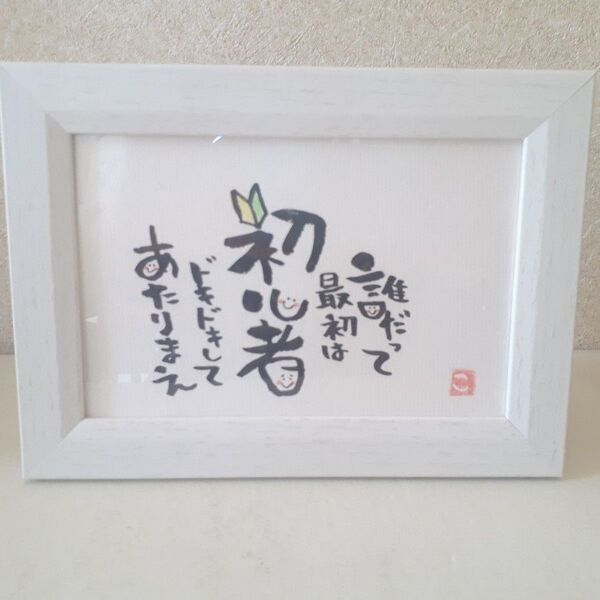 誰だって
最初は
初心者
ドキドキして
あたりまえ